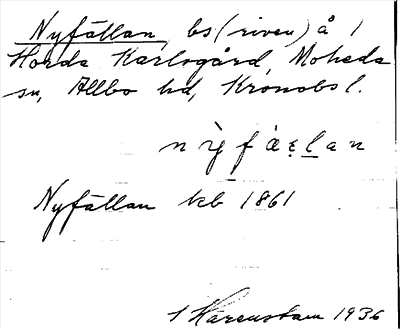 Nyfällan, bs (riven) å 1
Horda Karlsgård, Moheda
sn, Allbo hd, Kronobs l.
Nyfällan kb 1861
Härenstam 1936